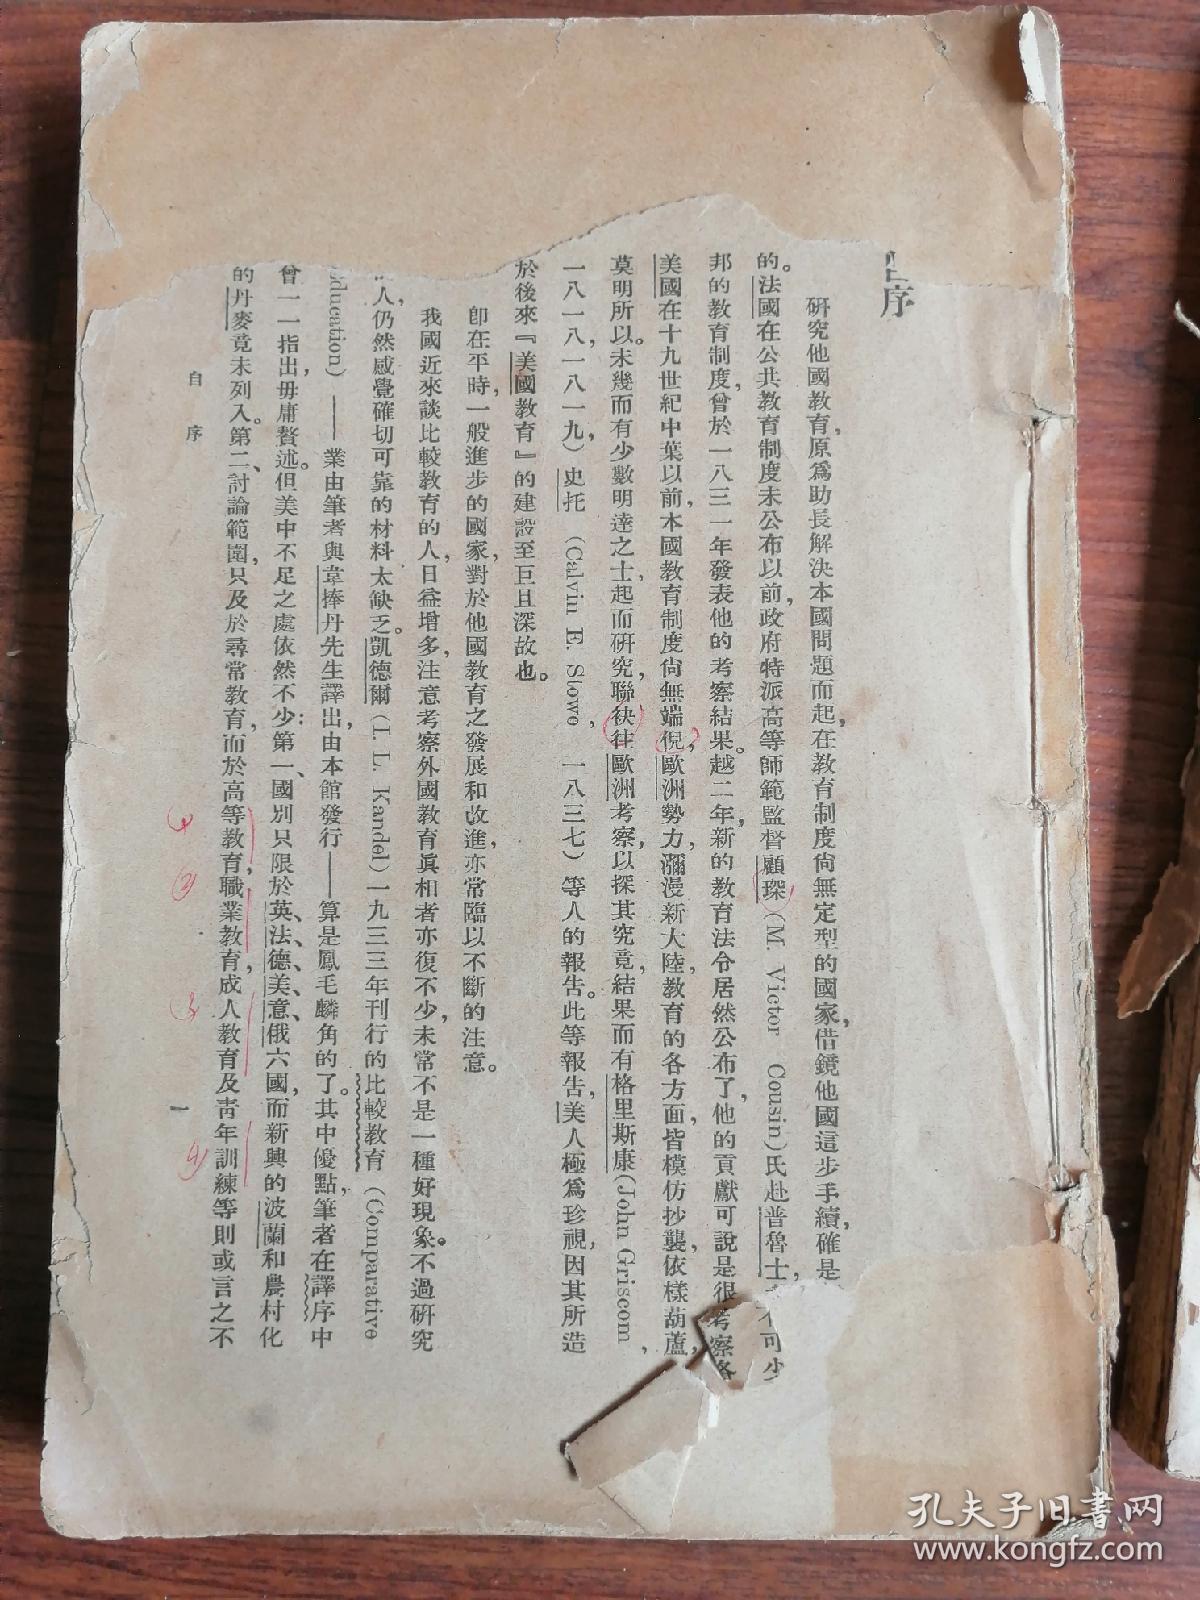 序
研究他國教育，原爲助長解決本國問題而起，在教育制度尚無定型的國家，借鏡他國這步手續，確是
的。法國在公共教育制度未公布以前，政府特派高等師範監督顧琛（M. Victor Cousin）氏赴普魯士，不可少
邦的教育制度，曾於一八三一年發表他的考察結果。越二年，新的教育法令居然公布了，他的貢獻可說是很考察各
美國在十九世紀中葉以前，本國教育制度尚無端倪，歐洲勢力瀰漫新大陸，教育的各方面，皆模仿抄襲，依樣葫蘆，
莫明所以。未幾而有少數明達之士，起而研究，聯袂往歐洲考察，以探其究竟，結果而有格里斯康（John Griscom，
一八一八，一八一九）史托（Calvin E. Stowe，一八三七）等人的報告。此等報告，美人極爲珍視，因其所造
於後來『美國教育』的建設至巨且深故也。
卽在平時，一般進步的國家，對於他國教育之發展和改進，亦常臨以不斷的注意。
我國近來談比較教育的人，日益增多，注意考察外國教育眞相者亦復不少，未常不是一種好現象。不過研究
人，仍然感覺確切可靠的材料太缺乏。凱德爾（I. L. Kandel）一九三三年刊行的比較教育（Comparative
Education）——業由筆者與韋捧丹先生譯出，由本館發行——算是鳳毛麟角的了。其中優點，筆者在譯序中
曾一一指出，毋庸贅述。但美中不足之處依然不少：第一、國別只限於英、法、德、美、意、俄六國，而新興的波蘭和農村化
的丹麥竟未列入。第二、討論範圍，只及於尋常教育，而於高等教育，職業教育，成人教育及青年訓練等則或言之不
自序
一
孔夫子旧書网
www.kongfz.com